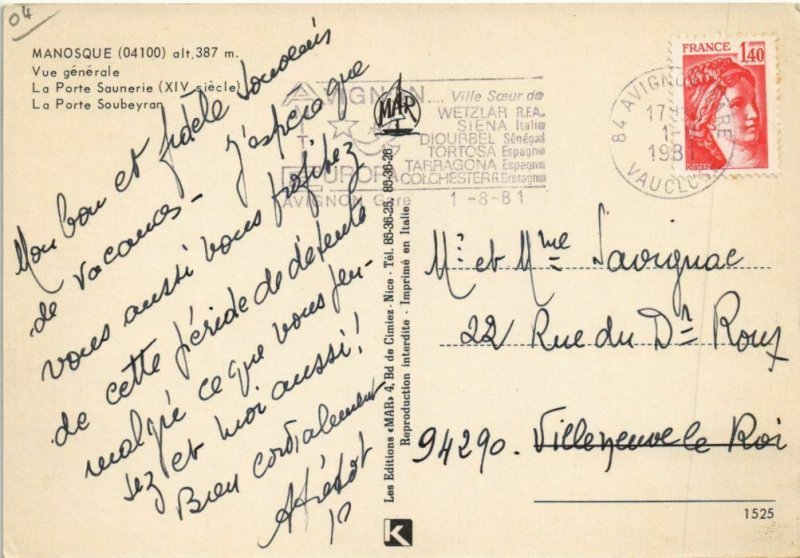 04
MANOSQUE (04100) alt. 387 m.
Vue générale
La Porte Saunerie (XIV siècle)
La Porte Soubeyran
Mon bon et fidèle souvenir
de vacances - J'espère que
vous aussi vous profitez
de cette période de détente
malgré ce que vous pen-
sez et moi aussi!
Bien cordialement
MAR
Les Editions «MAR» 4, Bd de Cimiez - Nice - Tél. 85-36-25, 85-36-26
Reproduction interdite - Imprimé en Italie
K
AVIGNON.... Ville Sœur de
WETZLAR R.F.A.
SIENA Italie
DIOURBEL Sénégal
TORTOSA Espagne
TARRAGONA Espagne
COLCHESTER G.Bretagne
EUROPA
AVIGNON Gare 1-8-81
84 AVIGNON GARE
VAUCLUSE
FRANCE
1,40
POSTES
Mr et Mme Savignac
22 Rue du Dr Roux
94290. Villeneuve le Roi
1525